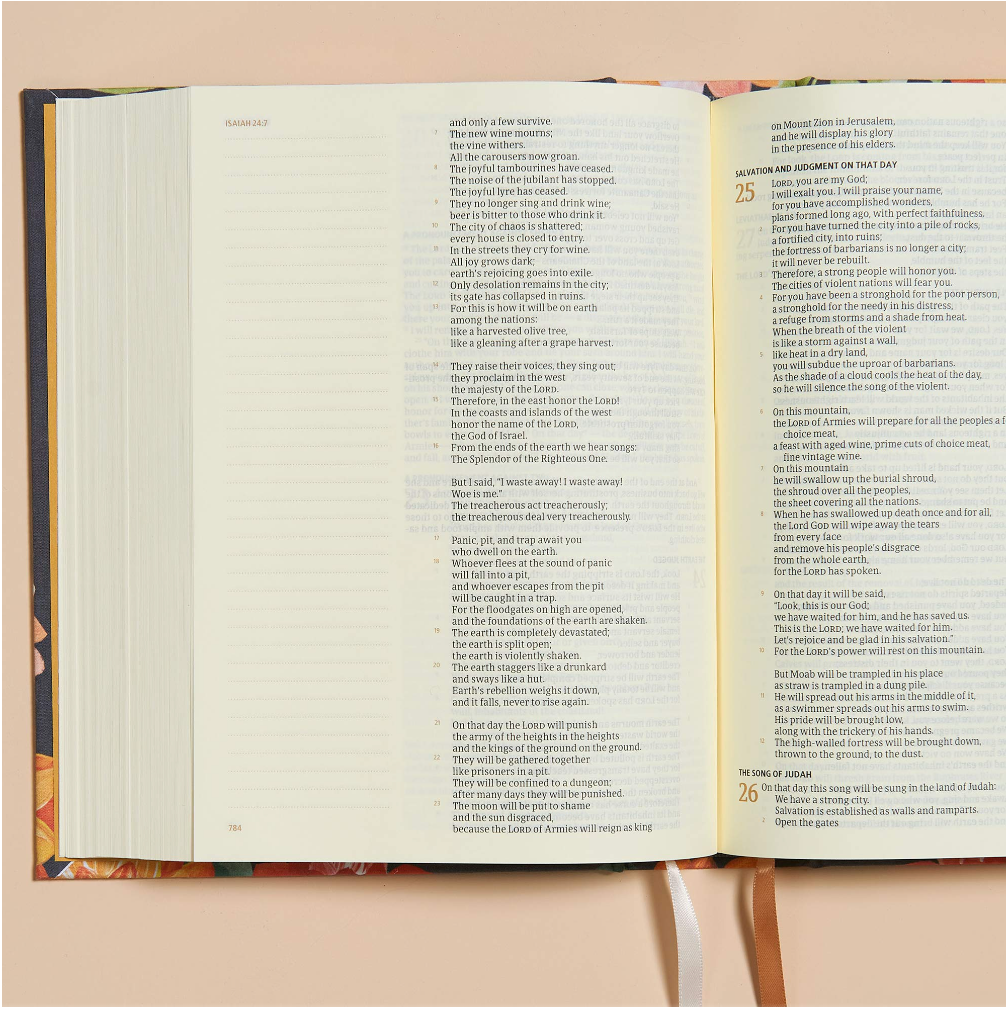 ISAIAH 24:7
and only a few survive.
7 The new wine mourns;
the vine withers.
All the carousers now groan.
8 The joyful tambourines have ceased.
The noise of the jubilant has stopped.
The joyful lyre has ceased.
9 They no longer sing and drink wine;
beer is bitter to those who drink it.
10 The city of chaos is shattered;
every house is closed to entry.
11 In the streets they cry for wine.
All joy grows dark;
earth's rejoicing goes into exile.
12 Only desolation remains in the city;
its gate has collapsed in ruins.
13 For this is how it will be on earth
among the nations:
like a harvested olive tree,
like a gleaning after a grape harvest.
14 They raise their voices, they sing out;
they proclaim in the west
the majesty of the LORD.
15 Therefore, in the east honor the LORD!
In the coasts and islands of the west
honor the name of the LORD,
the God of Israel.
16 From the ends of the earth we hear songs:
The Splendor of the Righteous One.
But I said, "I waste away! I waste away!
Woe is me."
The treacherous act treacherously;
the treacherous deal very treacherously.
17 Panic, pit, and trap await you
who dwell on the earth.
18 Whoever flees at the sound of panic
will fall into a pit,
and whoever escapes from the pit
will be caught in a trap.
For the floodgates on high are opened,
and the foundations of the earth are shaken.
19 The earth is completely devastated;
the earth is split open;
the earth is violently shaken.
20 The earth staggers like a drunkard
and sways like a hut.
Earth's rebellion weighs it down,
and it falls, never to rise again.
21 On that day the LORD will punish
the army of the heights in the heights
and the kings of the ground on the ground.
22 They will be gathered together
like prisoners in a pit.
They will be confined to a dungeon;
after many days they will be punished.
23 The moon will be put to shame
and the sun disgraced,
because the LORD of Armies will reign as king
784
on Mount Zion in Jerusalem,
and he will display his glory
in the presence of his elders.
SALVATION AND JUDGMENT ON THAT DAY
25 LORD, you are my God;
I will exalt you. I will praise your name,
for you have accomplished wonders,
plans formed long ago, with perfect faithfulness.
2 For you have turned the city into a pile of rocks,
a fortified city, into ruins;
the fortress of barbarians is no longer a city;
it will never be rebuilt.
3 Therefore, a strong people will honor you.
The cities of violent nations will fear you.
4 For you have been a stronghold for the poor person,
a stronghold for the needy in his distress,
a refuge from storms and a shade from heat.
When the breath of the violent
is like a storm against a wall,
5 like heat in a dry land,
you will subdue the uproar of barbarians.
As the shade of a cloud cools the heat of the day,
so he will silence the song of the violent.
6 On this mountain,
the LORD of Armies will prepare for all the peoples a f
choice meat,
a feast with aged wine, prime cuts of choice meat,
fine vintage wine.
7 On this mountain
he will swallow up the burial shroud,
the shroud over all the peoples,
the sheet covering all the nations.
8 When he has swallowed up death once and for all,
the Lord GOD will wipe away the tears
from every face
and remove his people's disgrace
from the whole earth,
for the LORD has spoken.
9 On that day it will be said,
"Look, this is our God;
we have waited for him, and he has saved us.
This is the LORD; we have waited for him.
Let's rejoice and be glad in his salvation."
10 For the LORD's power will rest on this mountain.
But Moab will be trampled in his place
as straw is trampled in a dung pile.
11 He will spread out his arms in the middle of it,
as a swimmer spreads out his arms to swim.
His pride will be brought low,
along with the trickery of his hands.
12 The high-walled fortress will be brought down,
thrown to the ground, to the dust.
THE SONG OF JUDAH
26 On that day this song will be sung in the land of Judah:
We have a strong city.
Salvation is established as walls and ramparts.
2 Open the gates